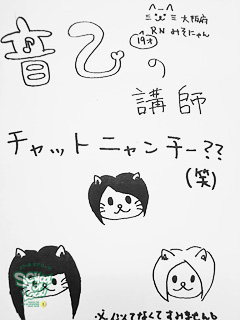 大阪府
RN みそにゃん
19才
音乙の
講師
チャットニャンチー??
(笑)
※似てなくてすみません。